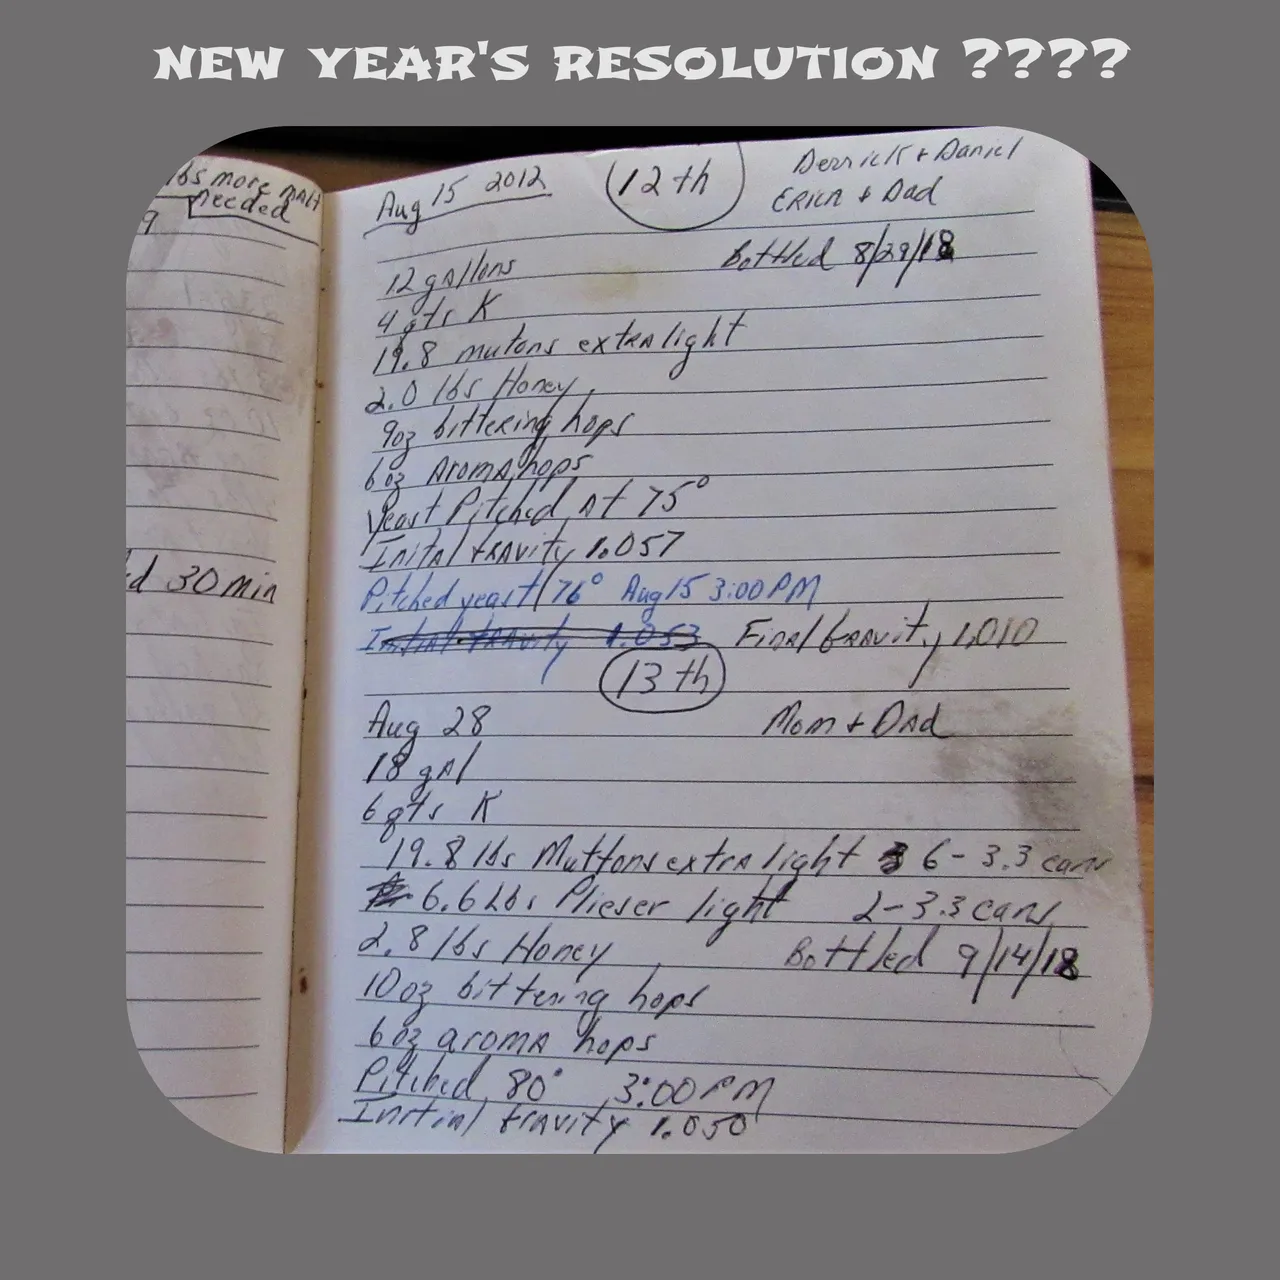 NEW YEAR'S RESOLUTION ????
lbs more malt
needed
9
d 30 min
Aug 15 2012 12th Derrick + Daniel
Erica + Dad
Bottled 8/29/18
12 gallons
4 qts K
19.8 mutons extralight
2.0 lbs Honey
9oz bittering hops
6 oz Aroma hops
Yeast Pitched At 75°
Inital gravity 1.057
Pitched yeast 76° Aug 15 3:00 PM
Initial gravity 1.053 Final Gravity 1.010
13 th
Aug 28 Mom + Dad
18 gal
6 qts K
19.8 lbs Muttons extra light 6 - 3.3 cans
6.6 Lbs Plieser light 2 - 3.3 cans
2.8 lbs Honey Bottled 9/14/18
10 oz bittering hops
6 oz aroma hops
Pitched 80° 3:00 PM
Initial gravity 1.050